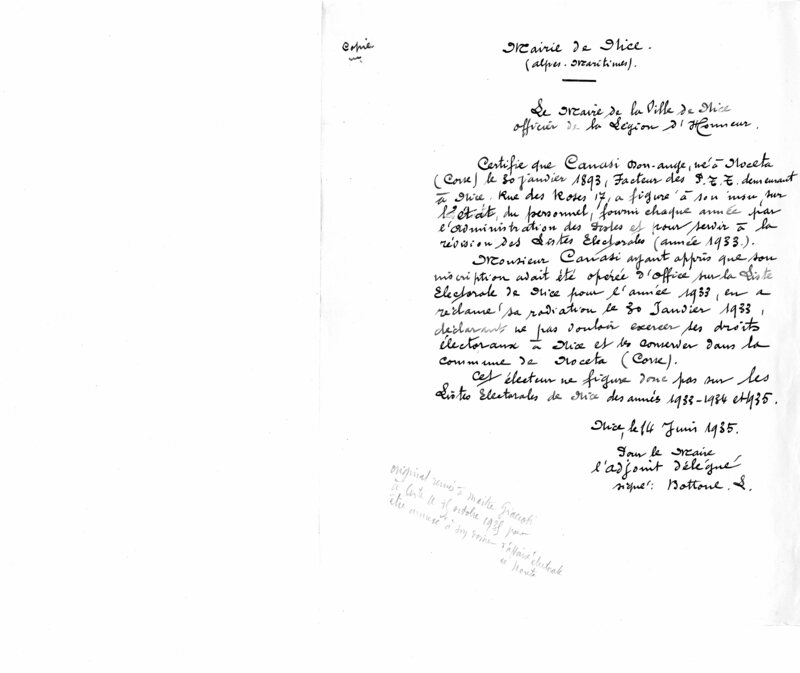 Copie
Mairie de Nice.
(Alpes-Maritimes).
Le Maire de la Ville de Nice
officier de la Légion d'Honneur.
Certifie que Canasi Don-ange, né à Noceta
(Corse) le 30 janvier 1893, Facteur des P.T.T. demeurant
à Nice, Rue des Roses 17, a figuré à son insu, sur
l'état, du personnel, fourni chaque année par
l'Administration des Postes et pour servir à la
révision des Listes Electorales (année 1933.).
Monsieur Canasi ayant appris que son
inscription avait été opérée d'Office sur la Liste
Electorale de Nice pour l'année 1933, en a
réclamé sa radiation le 30 Janvier 1933,
déclarant ne pas vouloir exercer ses droits
électoraux à Nice et les conserver dans la
commune de Noceta (Corse).
Cet électeur ne figure donc pas sur les
Listes Electorales de Nice des années 1933-1934 et 1935.
Nice, le 14 Juin 1935.
Pour le Maire
l'adjoint délégué
signé: Bottone. L.
original remis à maître
à Corte le octobre 1935 pour
être annexé à son dossier d'affaire électorale
de Noceta